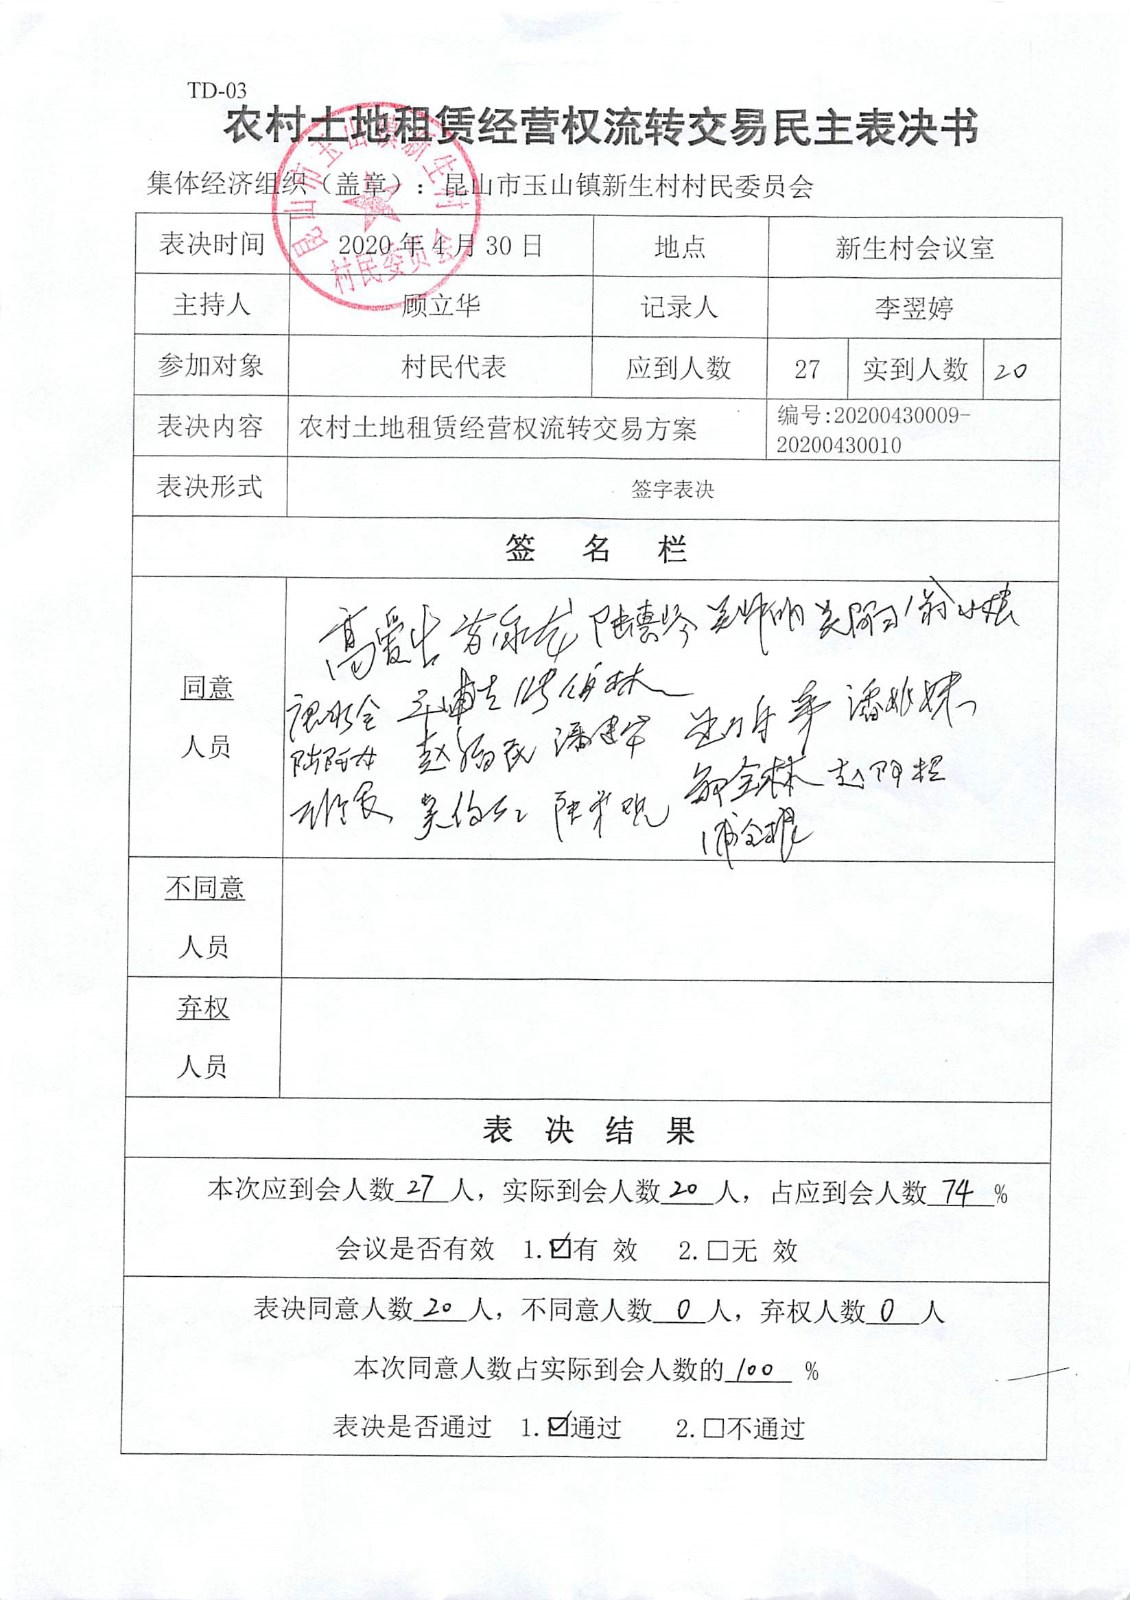 TD-03
农村土地租赁经营权流转交易民主表决书
集体经济组织（盖章）：昆山市玉山镇新生村村民委员会
昆山市玉山镇新生村
村民委员会
表决时间 2020 年 4 月 30 日 地点 新生村会议室
主持人 顾立华 记录人 李翌婷
参加对象 村民代表 应到人数 27 实到人数 20
表决内容 农村土地租赁经营权流转交易方案 编号:20200430009-
20200430010
表决形式 签字表决
签 名 栏
高爱 陆惠琴
同意
潘建 潘
人员 赵 民
吴伯 金林 赵阿根
金根
不同意
人员
弃权
人员
表 决 结 果
本次应到会人数 27 人，实际到会人数 20 人，占应到会人数 74 %
会议是否有效 1.☑有 效 2.□无 效
表决同意人数 20 人，不同意人数 0 人，弃权人数 0 人
本次同意人数占实际到会人数的 100 %
表决是否通过 1.☑通过 2.□不通过